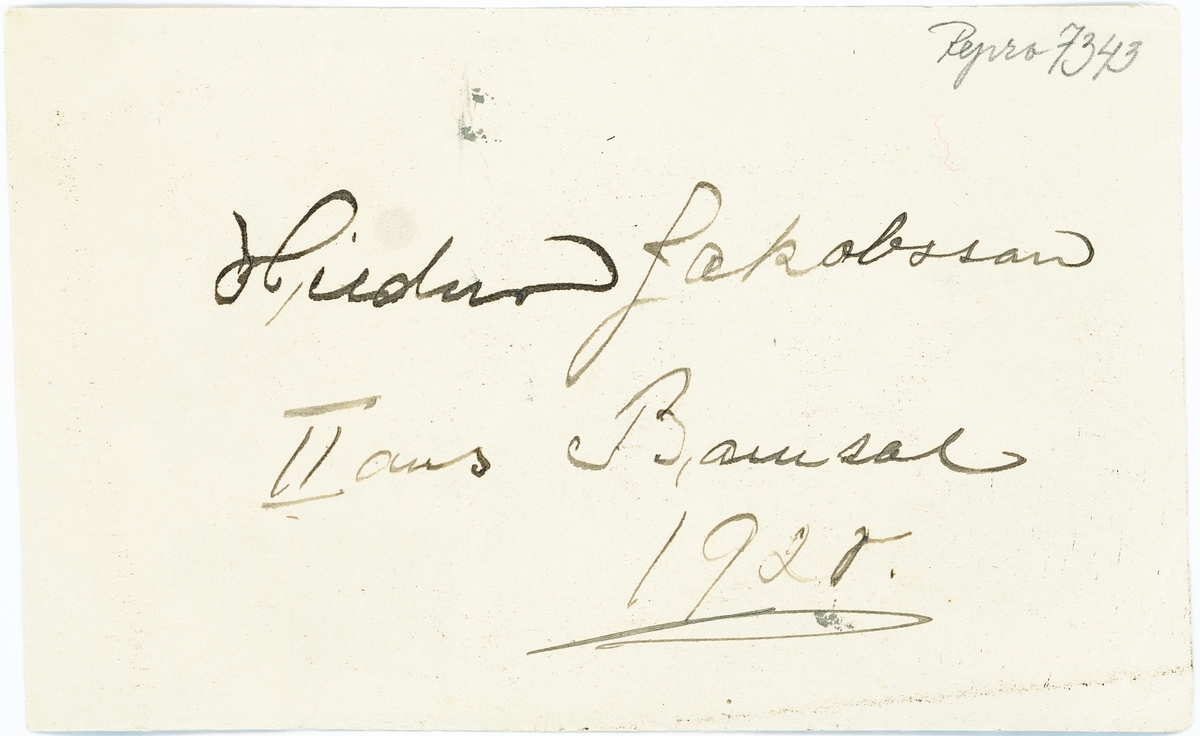 Repro 7343
Hildur Jakobsson
II ans Barnsal
1928.